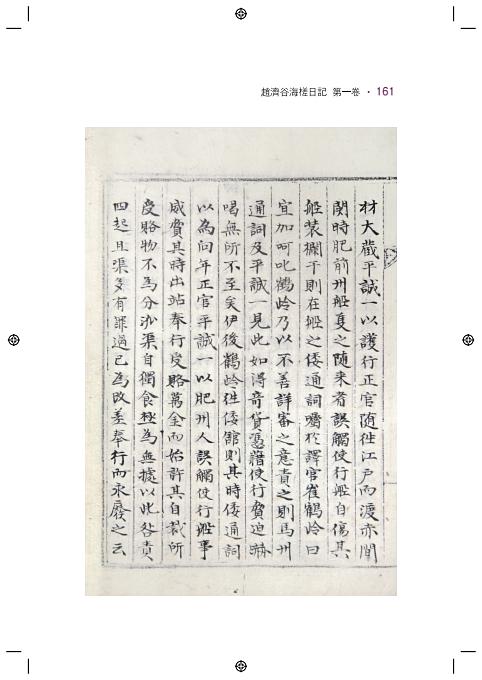 趙濟谷海槎日記 第一卷 · 161
材大藏平誠一以護行正官随往江戶而渡赤間
関時肥前州舩夏之随来者誤觸使行舩自傷其
舩裝欄干則在舩之倭通詞囑於譯官崔鶴岭曰
宜加呵叱鶴岭乃以不善詳審之意責之則馬州
通詞及平誠一見此如得奇貨憑藉使行費迫嚇
喝無所不至矣伊後鶴岭往倭館則其時倭通詞
以為向年正官平誠一以肥州人誤觸使行舩事
威賷其時出站奉行受賂萬金而始許其自裁所
受賂物不為分沠渠自獨食極為無據以此咎責
四起且渠多有罪過已為改差奉行而永廢之云